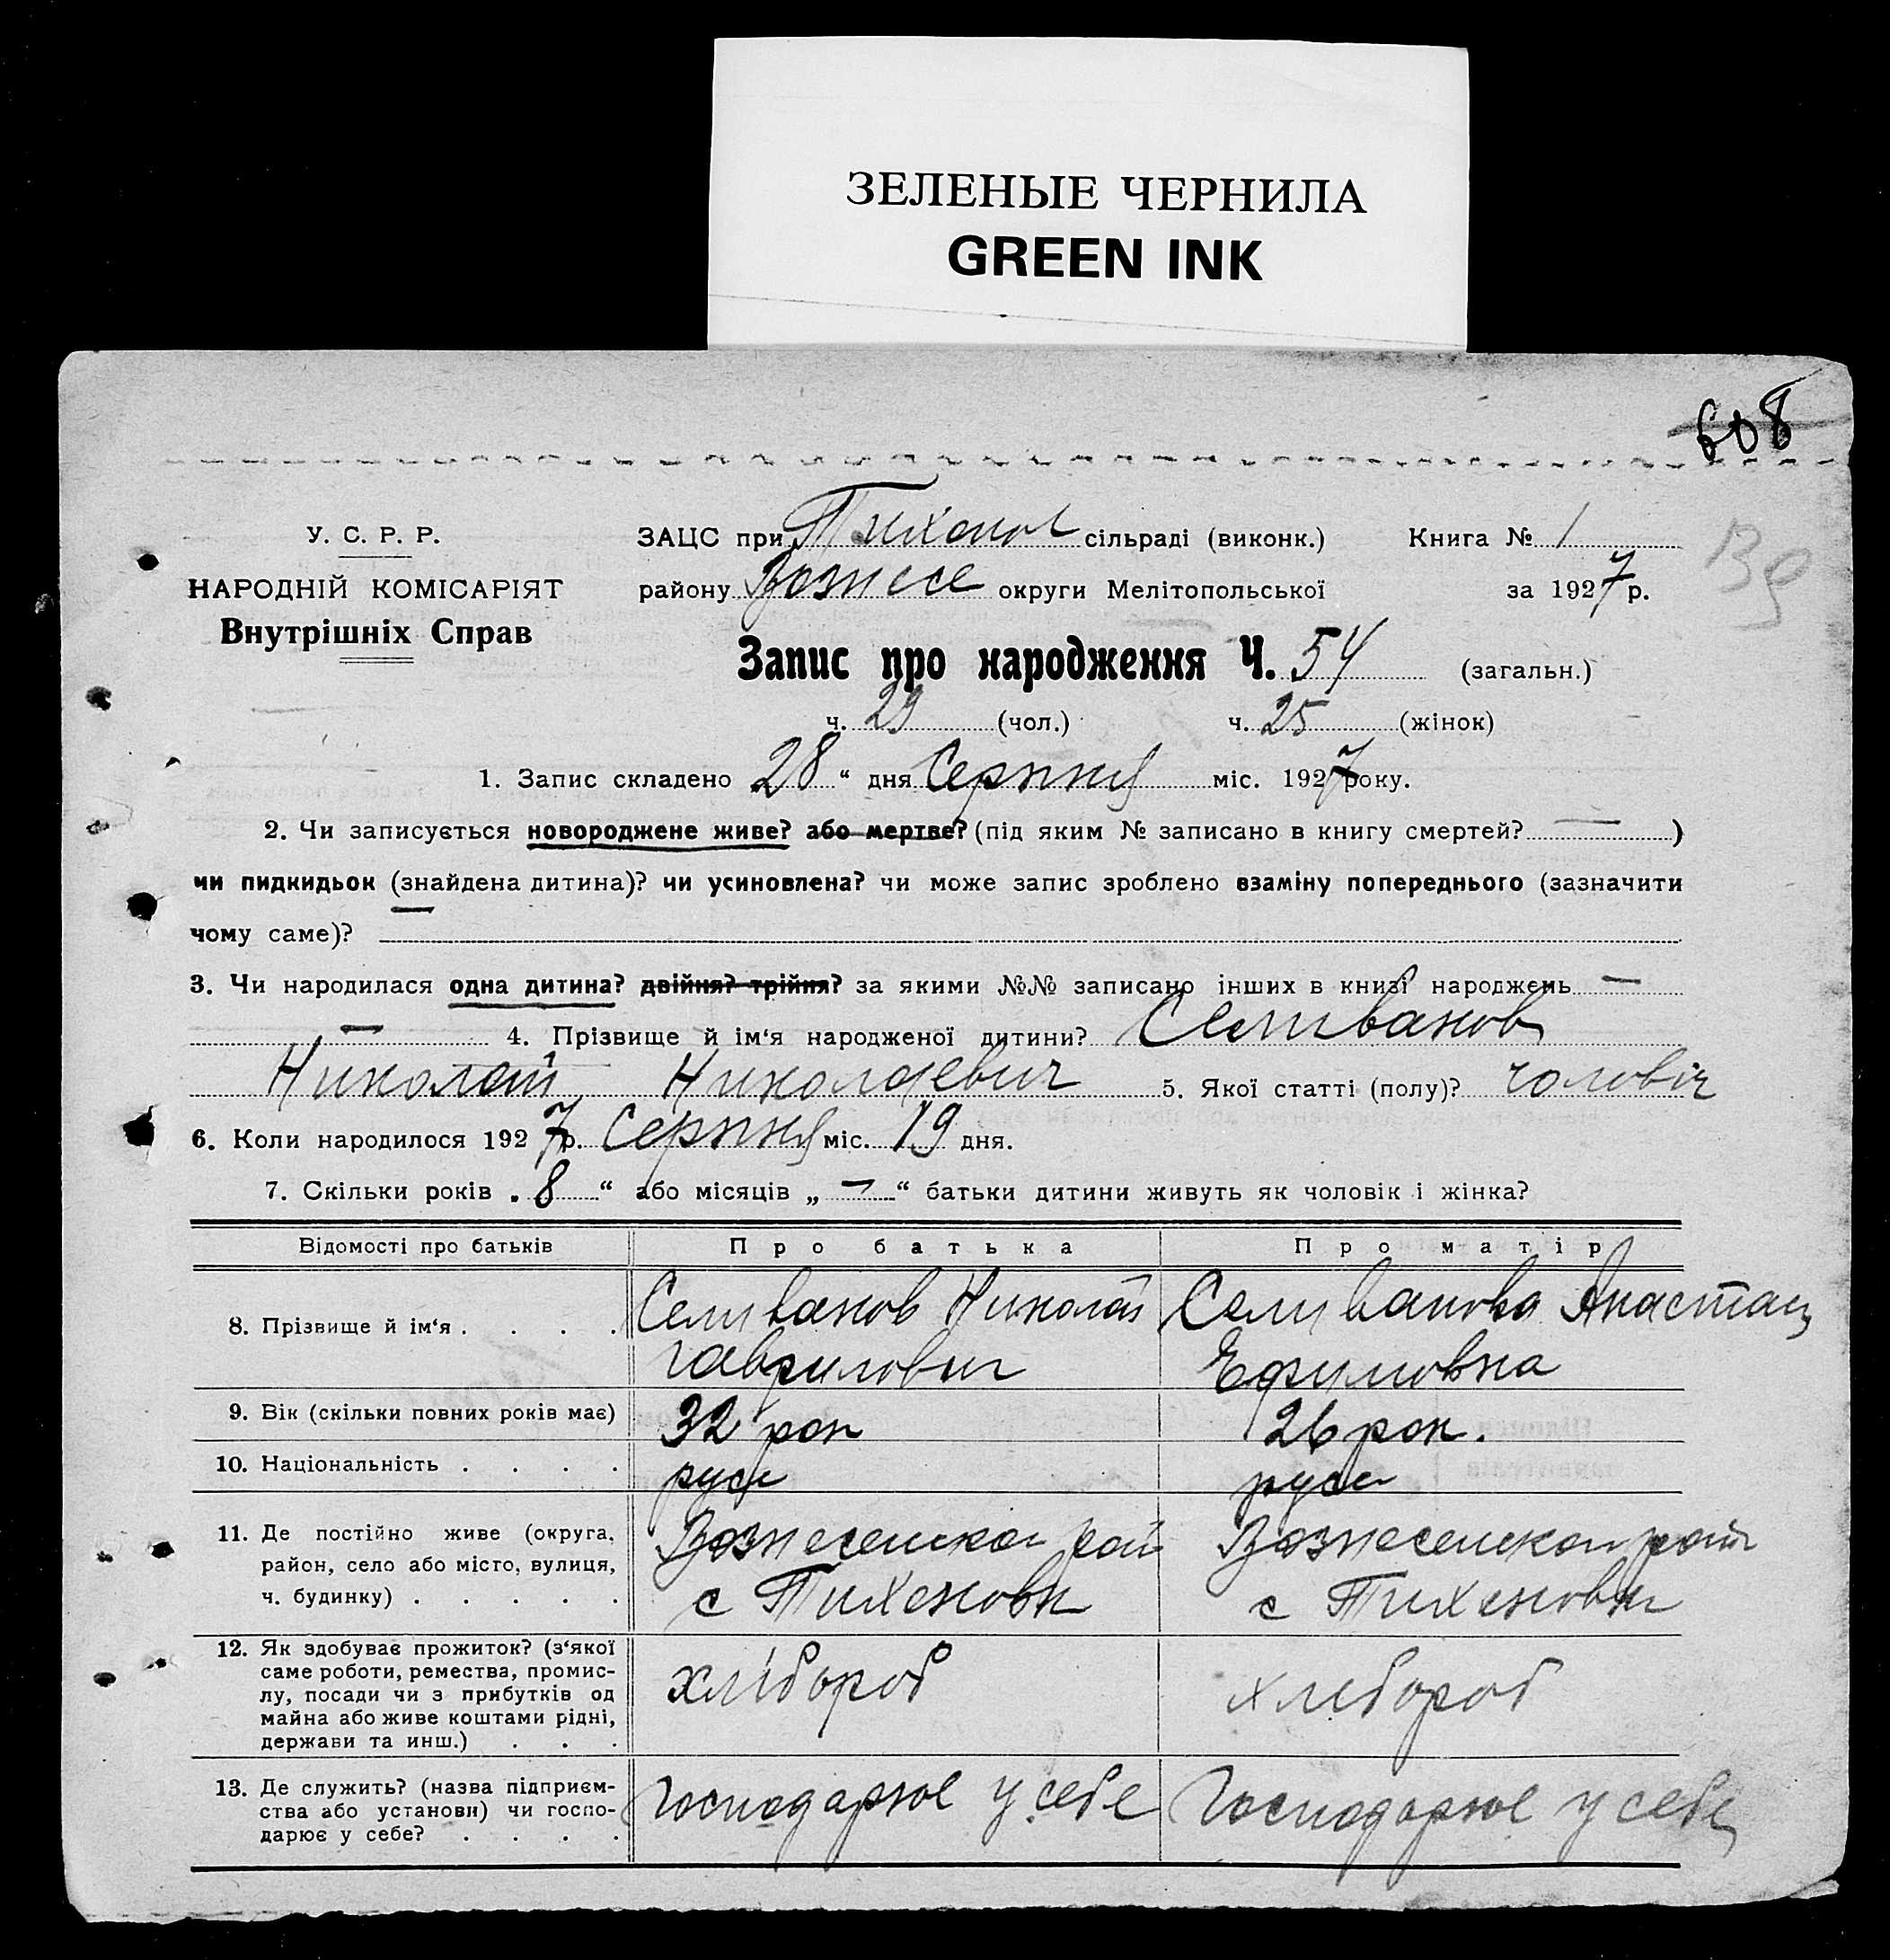 ЗЕЛЕНЫЕ ЧЕРНИЛА
GREEN INK
608
У. С. Р. Р.
НАРОДНІЙ КОМІСАРІЯТ
Внутрішніх Справ
ЗАЦС при Тихонов сільраді (виконк.) Книга № 1
району Вознесе округи Мелітопольської за 1927 р.
Запис про народження Ч. 54 (загальн.)
ч. 29 (чол.) ч. 25 (жінок)
1. Запис складено 28 “ дня Серпня міс. 1927 року.
2. Чи записується новороджене живе? або мертве? (під яким № записано в книгу смертей? — )
чи пидкидьок (знайдена дитина)? чи усиновлена? чи може запис зроблено взаміну попереднього (зазначити
чому саме)?
3. Чи народилася одна дитина? двійня? трійня? за якими №№ записано інших в книзі народжень —
— 4. Прізвище й ім‘я народженої дитини? Селиванов
Николай Николаевич 5. Якої статті (полу)? чоловіч
6. Коли народилося 1927 р. Серпня міс. 19 дня.
7. Скільки років „ 8 “ або місяців „ — “ батьки дитини живуть як чоловік і жінка?
Відомості про батьків Про батька Про матір
8. Прізвище й ім‘я . . . . Селиванов Николай Селиванова Анастац
Гаврилович Ефимовна
9. Вік (скільки повних років має) 32 рок 26 рок.
10. Національність . . . . руск руск
11. Де постійно живе (округа, Вознесенском рай Вознесенском рай
район, село або місто, вулиця,
ч. будинку) . . . . . с Тихоновк с Тихоновк
12. Як здобуває прожиток? (з‘якої
саме роботи, ремества, промис- хлібороб хлебороб
лу, посади чи з прибутків од
майна або живе коштами рідні,
держави та инш.) . . .
13. Де служить? (назва підприєм- Господарює у себе Господарює у себе
ства або установи) чи госпо-
дарює у себе? . . . .